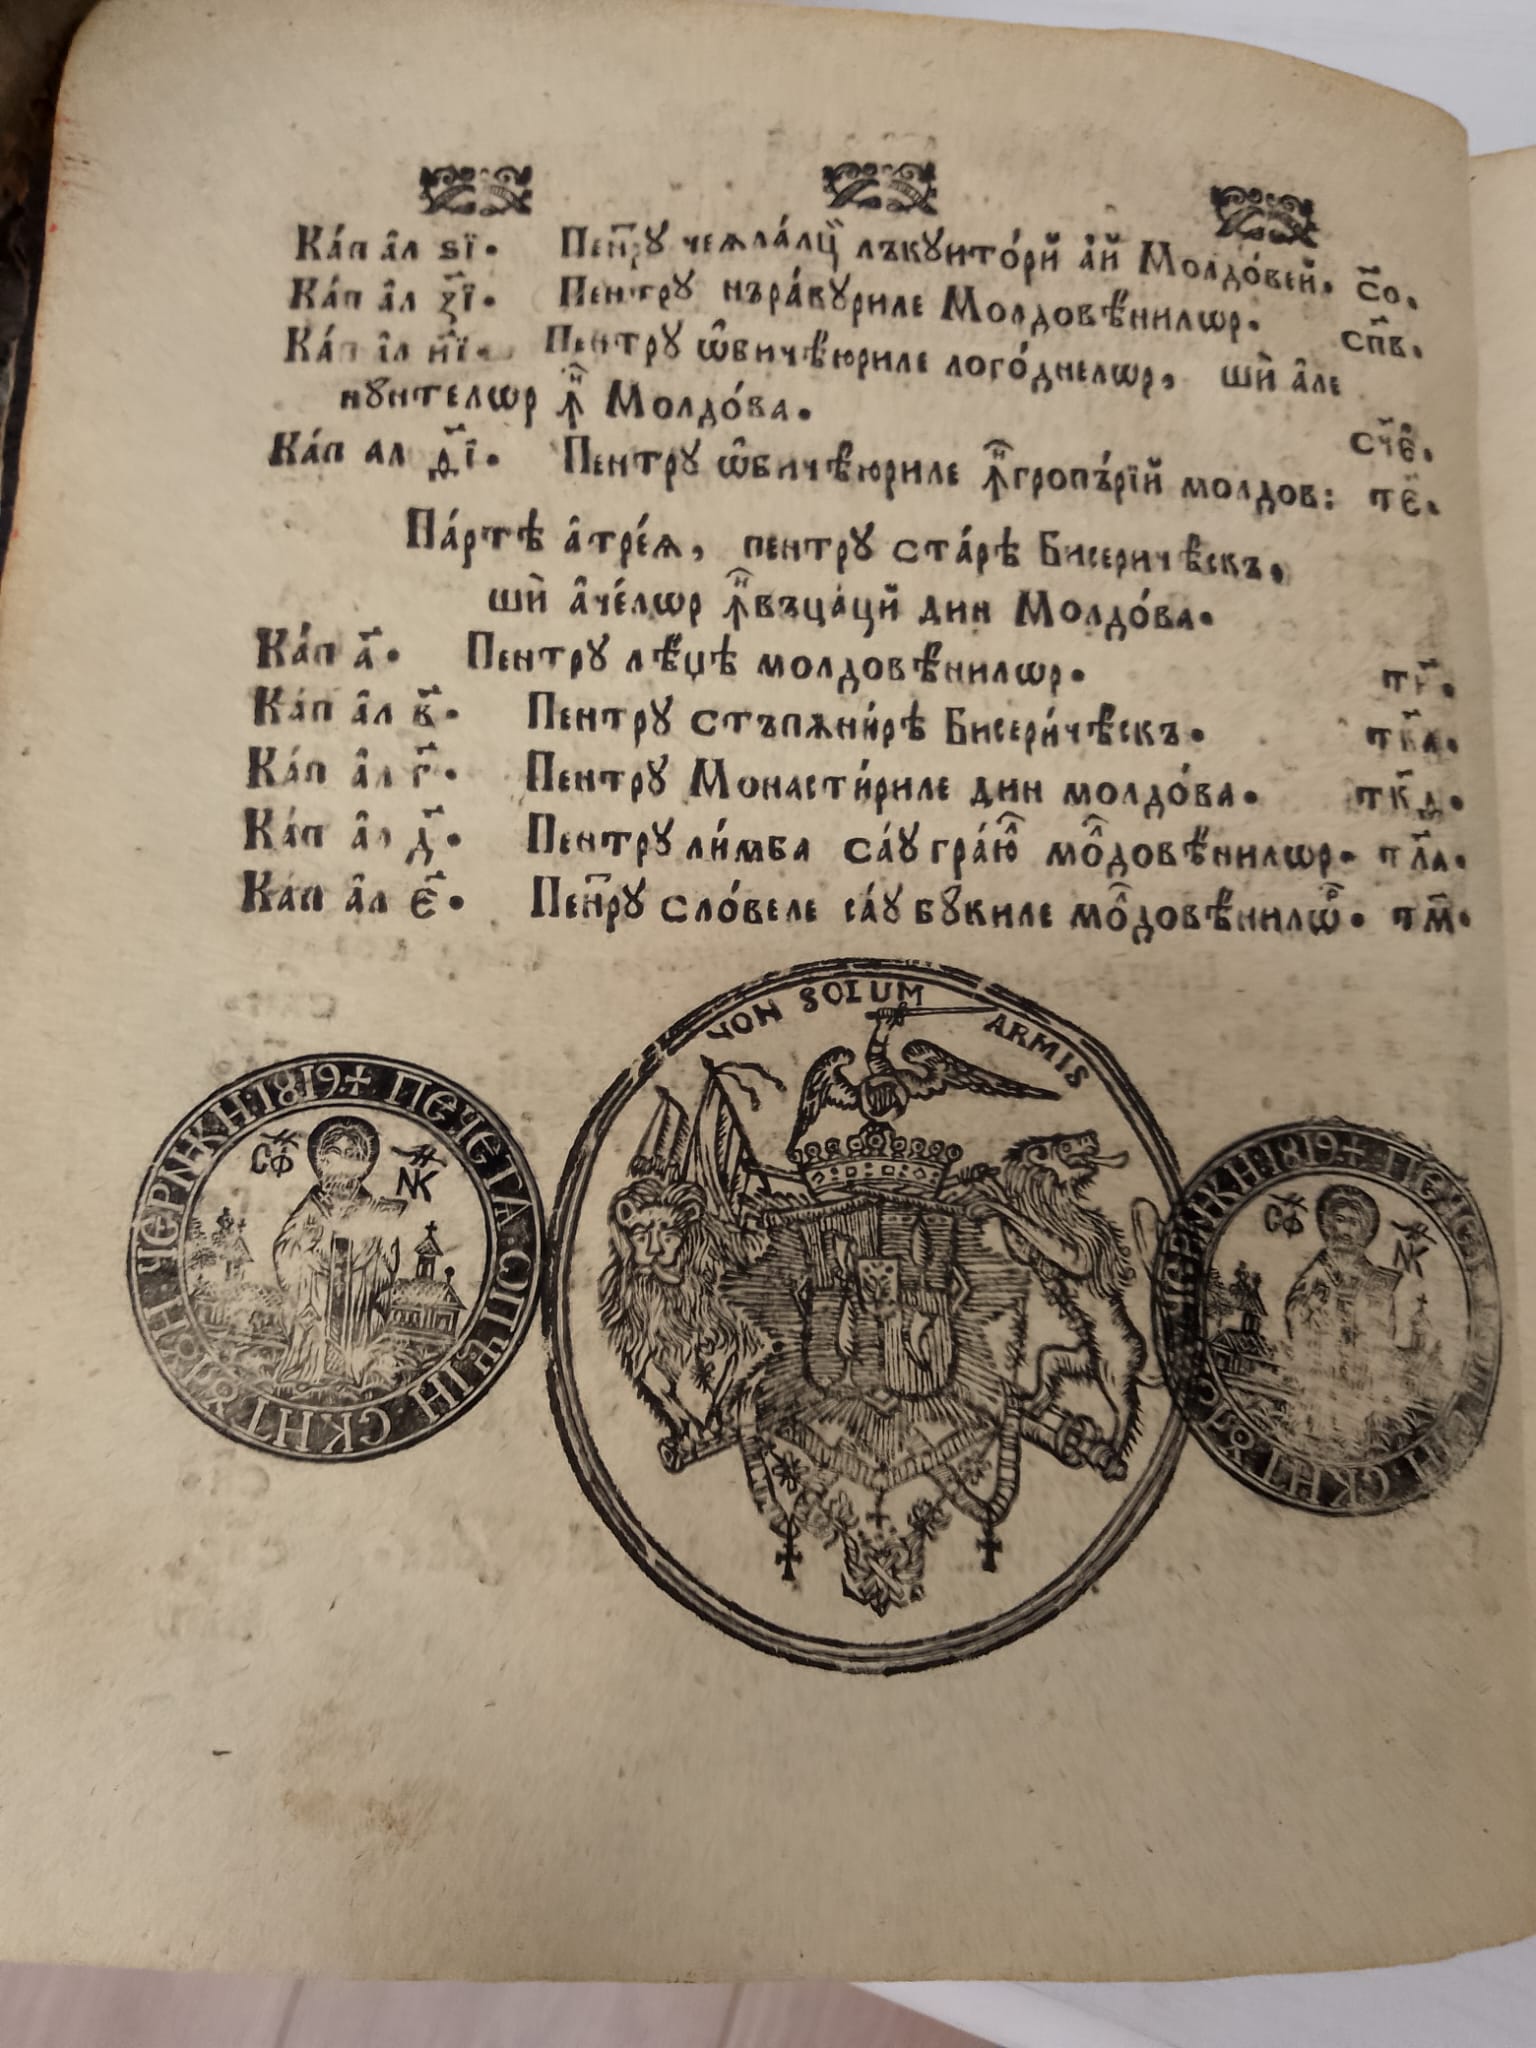 Ка́п а̂л ѕ҃ї. Пен̾ру чеѧла́лцй лъкуито́рй а́й Молдо́вей. с҃о.
Ка́п а̂л з҃ї. Пентру нъра́вуриле Молдовѣ́нилѡр. сп҃в.
Ка́п а̂л и҃ї. Пентру ѡ̂бичѣ́юриле лого́днелѡр, шѝ а̂ле
нꙋнтелѡр ꙟ҆ Молдо́ва. сч҃є.
Ка́п ал ѳ҃ї. Пентру ѡ̂бичѣ́юриле ꙟ҆гропъ́рїй молдов: т҃є.
Па́ртѣ а̂тре́ѧ, пентру ста́рѣ Бисеричѣ́скъ.
шѝ а̂че́лѡр ꙟ҆въца́цй дин Молдо́ва.
Ка́п а҃. Пентру лѣ́џѣ молдовѣ́нилѡр.
Ка́п а̂л в҃. Пентру стъпѫни́рѣ Бисери́чѣскъ.
Ка́п а̂л г҃. Пентру Монасти́риле дин молдо́ва. тк҃д.
Ка́п а̂л д҃. Пентру ли́мба са́у гра́ю̂ мо̂довѣ́нилѡр. тл҃а.
Ка́п а̂л є҃. Пен̾ру сло́веле са́у бꙋкиле мо̂довѣ́нилѡ̂. тм҃.
NON SOLUM ARMIS
ПЕЧЕТА·ѠПЧІИ·СКИТꙊЛꙊИ ЧЕРНИКИ·1819+
СФ НК
ПЕЧЕТА·ѠПЧІИ·СКИТꙊЛꙊИ ЧЕРНИКИ·1819+
СФ НК